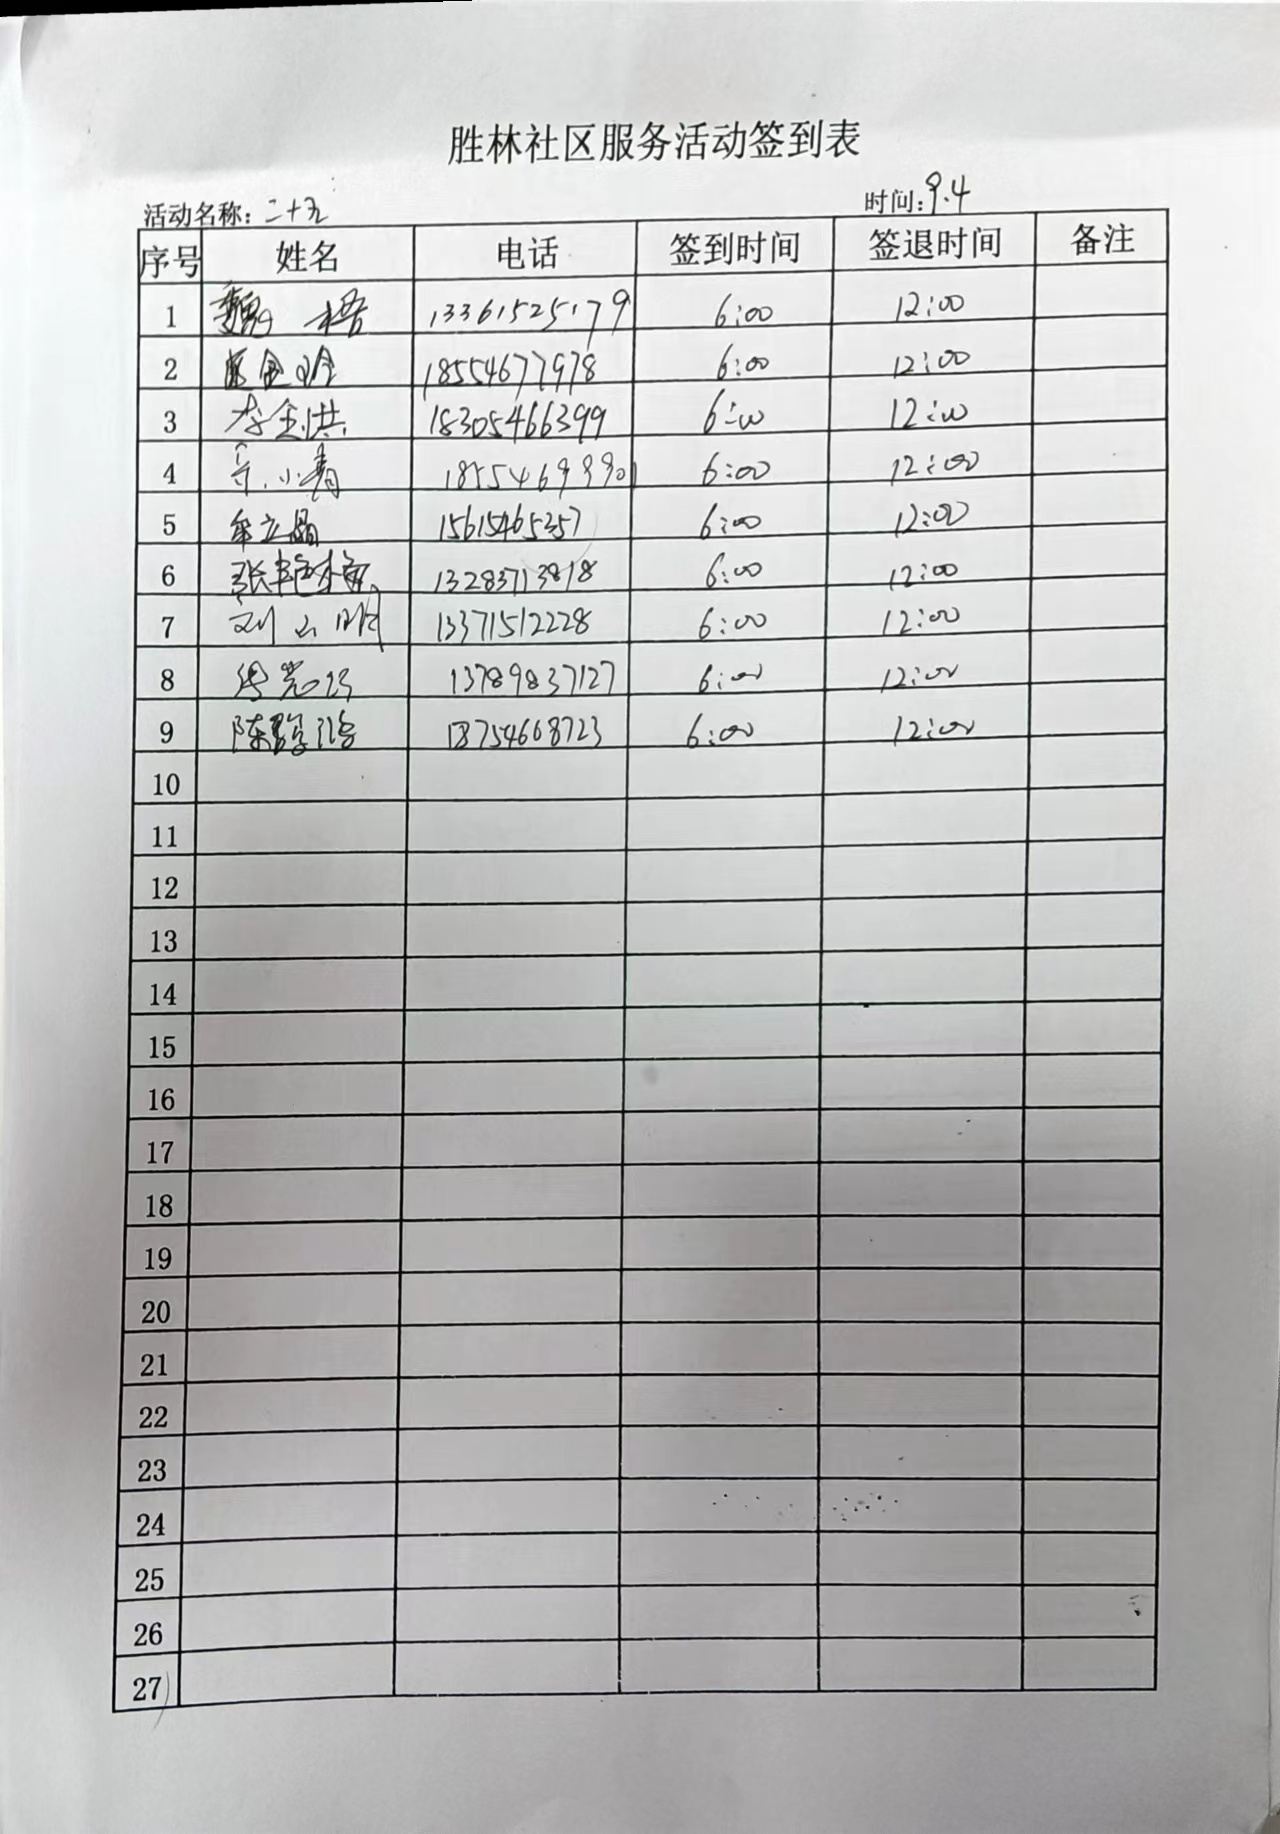 胜林社区服务活动签到表
活动名称：二十九 时间：9.4
序号 姓名 电话 签到时间 签退时间 备注
1 魏 梧 13361525179 6:00 12:00
2 18554677978 6:00 12:00
3 李金洪 18305466399 6:00 12:00
4 小青 6:00 12:00
5 牟立晶 15615465357 6:00 12:00
6 张艳梅 13283713818 6:00 12:00
7 刘云明 13371512228 6:00 12:00
8 13789837127 6:00 12:00
9 陈 18754668723 6:00 12:00
10
11
12
13
14
15
16
17
18
19
20
21
22
23
24
25
26
27